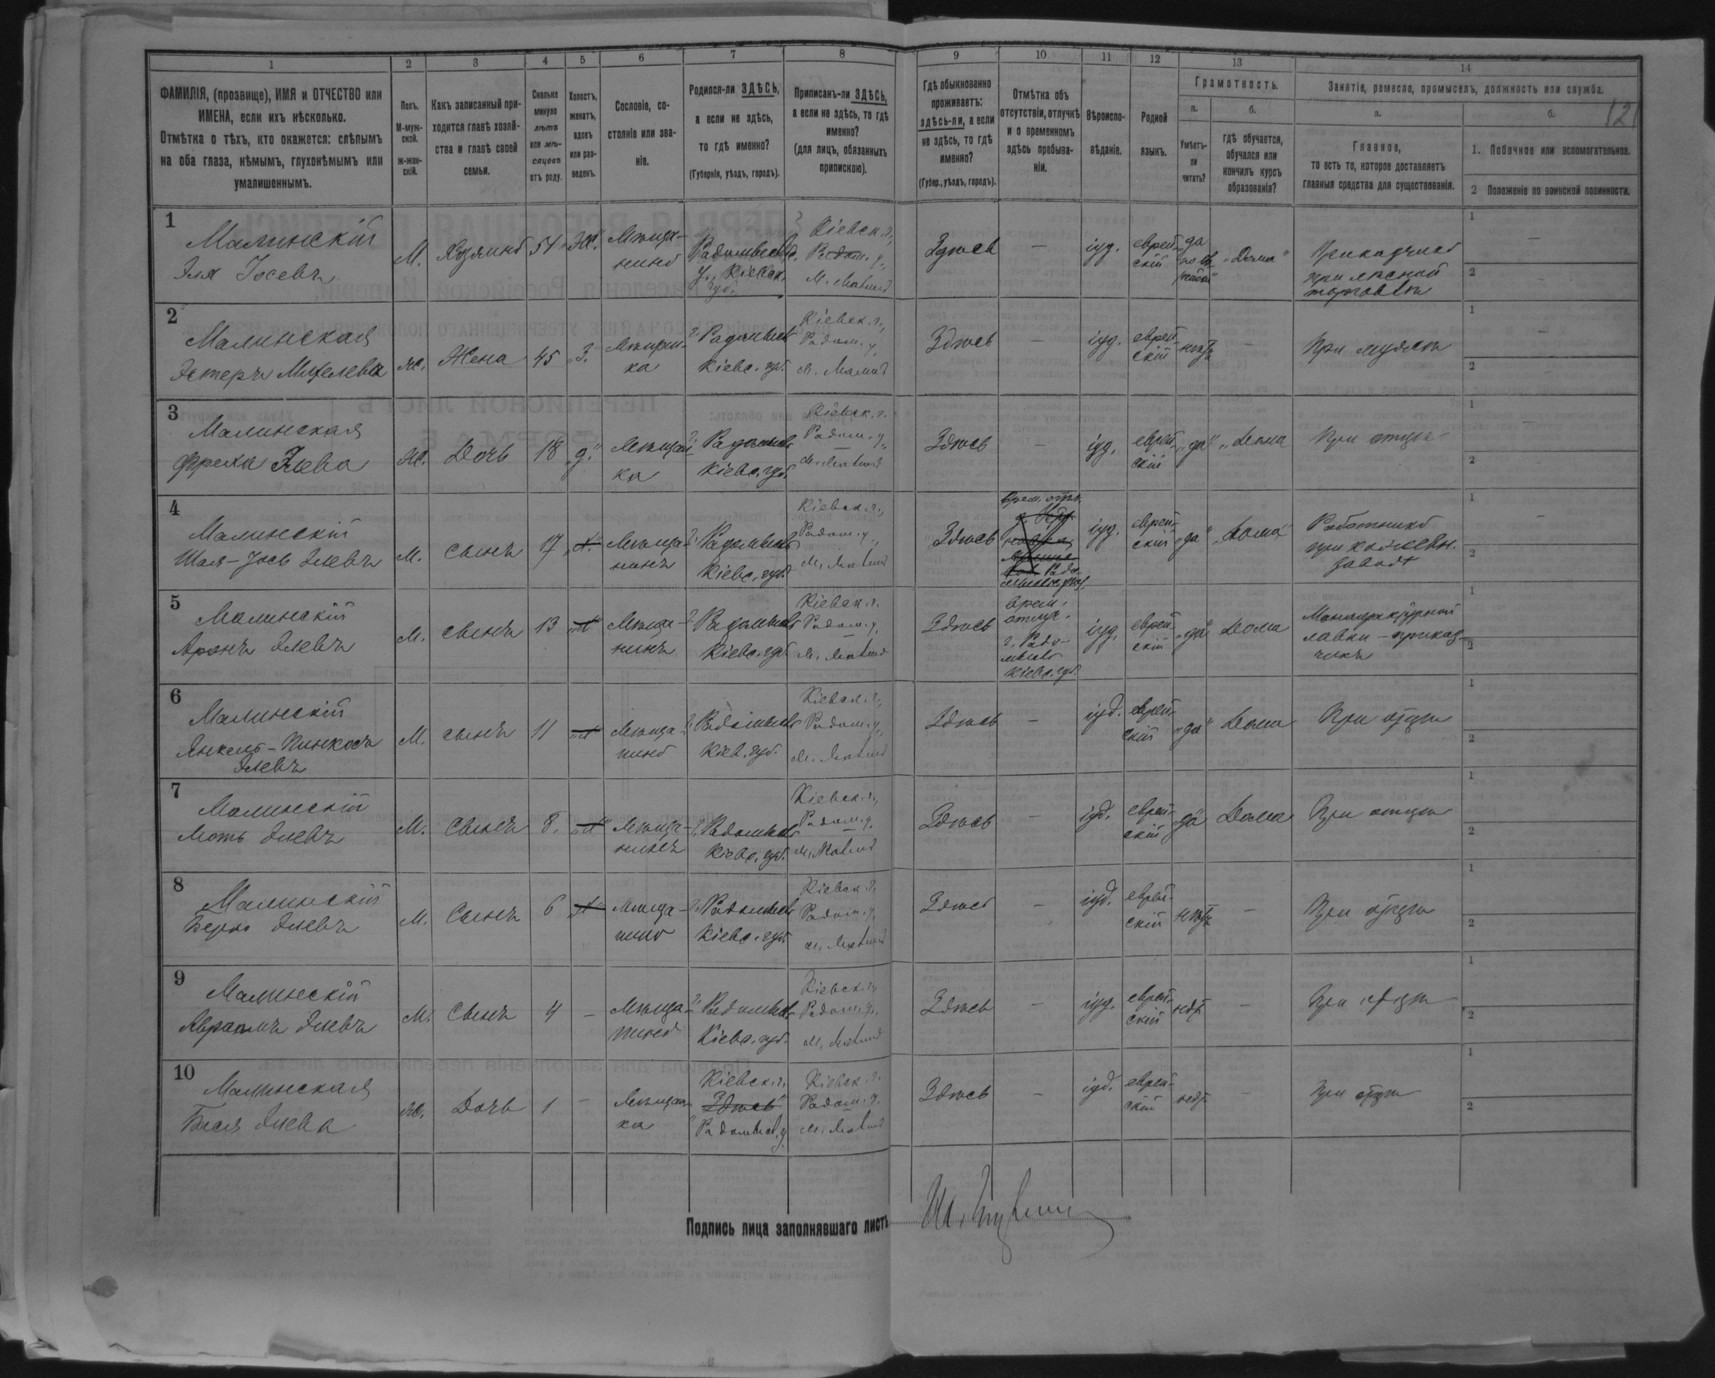 1 2 3 4 5 6 7 8 9 10 11 12 13 14
ФАМИЛІЯ, (прозвище), ИМЯ и ОТЧЕСТВО или
ИМЕНА, если ихъ нѣсколько.
Отмѣтка о тѣхъ, кто окажется: слѣпымъ
на оба глаза, нѣмымъ, глухонѣмымъ или
умалишеннымъ.
Полъ.
М-муж-
ской.
Ж-жен-
скій.
Какъ записанный при-
ходится главѣ хозяй-
ства и главѣ своей
семьи.
Сколько
минуло
лѣтъ
или мѣ-
сяцевъ
отъ роду.
Холостъ,
женатъ,
вдовъ
или раз-
веденъ.
Сословіе, со-
стояніе или зва-
ніе.
Родился-ли ЗДѢСЬ,
а если не здѣсь,
то гдѣ именно?
(Губернія, уѣздъ, городъ).
Приписанъ-ли ЗДѢСЬ,
а если не здѣсь, то гдѣ
именно?
(для лицъ, обязанныхъ
припискою).
Гдѣ обыкновенно
проживаетъ:
здѣсь-ли, а если
не здѣсь, то гдѣ
именно?
(Губер., уѣздъ, городъ).
Отмѣтка объ
отсутствіи, отлучкѣ
и о временномъ
здѣсь пребыва-
ніи.
Вѣроиспо-
вѣданіе.
Родной
языкъ.
Грамотность.
а.
Умѣетъ-
ли
читать?
б.
гдѣ обучается,
обучался или
кончилъ курсъ
образованія?
Занятіе, ремесло, промыселъ, должность или служба.
а.
Главное,
то есть то, которое доставляетъ
главныя средства для существованія.
б.
1. Побочное или вспомогательное.
2 Положеніе по воинской повинности.
12
1
Малинскій
Эля Іосевъ
М. Хозяинъ 54 Ж.
Мѣща-
нинъ
Кіевск. г.,
Радом. у.
М. Малинъ
Здѣсь — іуд. еврей-
скій
да
„Дома“
Прикащикъ
при лѣсной
торговли
2
Малинская
Эстеръ
ж. Жена 45 З.
ка
Кіевск. г.,
Радом. у.
м. Малинъ
Здѣсь — іуд. еврей-
скій нѣтъ —
При мужѣ
3
Малинская
Фрейха Элева
ж. Дочь 18 „д.“
ка
Кіевск. г.
Радом. у.
м. Малинъ
Здѣсь — іуд. еврей-
скій „да“ „Дома
При отцѣ
4
Малинскій
Элевъ
М. сынъ 17
Мѣща-
нинъ
Кіевск. г.,
Радом. у.,
м. Малинъ
Здѣсь іуд. еврей-
скій „да“ „Дома“
Работникъ
при
заводѣ
5
Малинскій
Аронъ Элевъ
М. сынъ 13
Мѣща-
нинъ
Кіевск. г.
Радом. у.
м. Малинъ
Здѣсь
врем.
отлуч.
г. Радо-
мысль
Кіевс. губ.
іуд. еврей-
скій „да“ Дома
Мануфактурной
лавки — приказ-
чикъ
6
Малинскій
Янкель-Пинхосъ
Элевъ
М. сынъ 11
Мѣща-
нинъ
Кіевск. г.,
Радом. у.
м. Малинъ
Здѣсь — іуд. еврей-
скій „да“ Дома
При отцѣ
7
Малинскій
Моть Элевъ
М. сынъ 8.
Мѣща-
нинъ
Кіевск. г.,
Радом. у.
м. Малинъ
Здѣсь — іуд. еврей-
скій да Дома
При отцѣ
8
Малинскій
Берко Элевъ
М. Сынъ 6
Мѣща-
нинъ
Кіевск. г.
Радом. у.
м. Малинъ
Здѣсь — іуд. еврей-
скій нѣтъ —
При отцѣ
9
Малинскій
Абрамъ Элевъ
М. Сынъ 4 —
Мѣща-
нинъ
Кіевск. г.
Радом. у.
м. Малинъ
Здѣсь — іуд. еврей-
скій нѣт —
При отцѣ
10
Малинская
Бася Элева
ж. Дочь 1 —
ка
Кіевск. г.
Здѣсь
Радомысл. у.
Кіевск. г.
Радом. у.
м. Малинъ
Здѣсь — іуд. еврей-
скій нѣт —
При отцѣ
Подпись лица заполнявшаго листъ